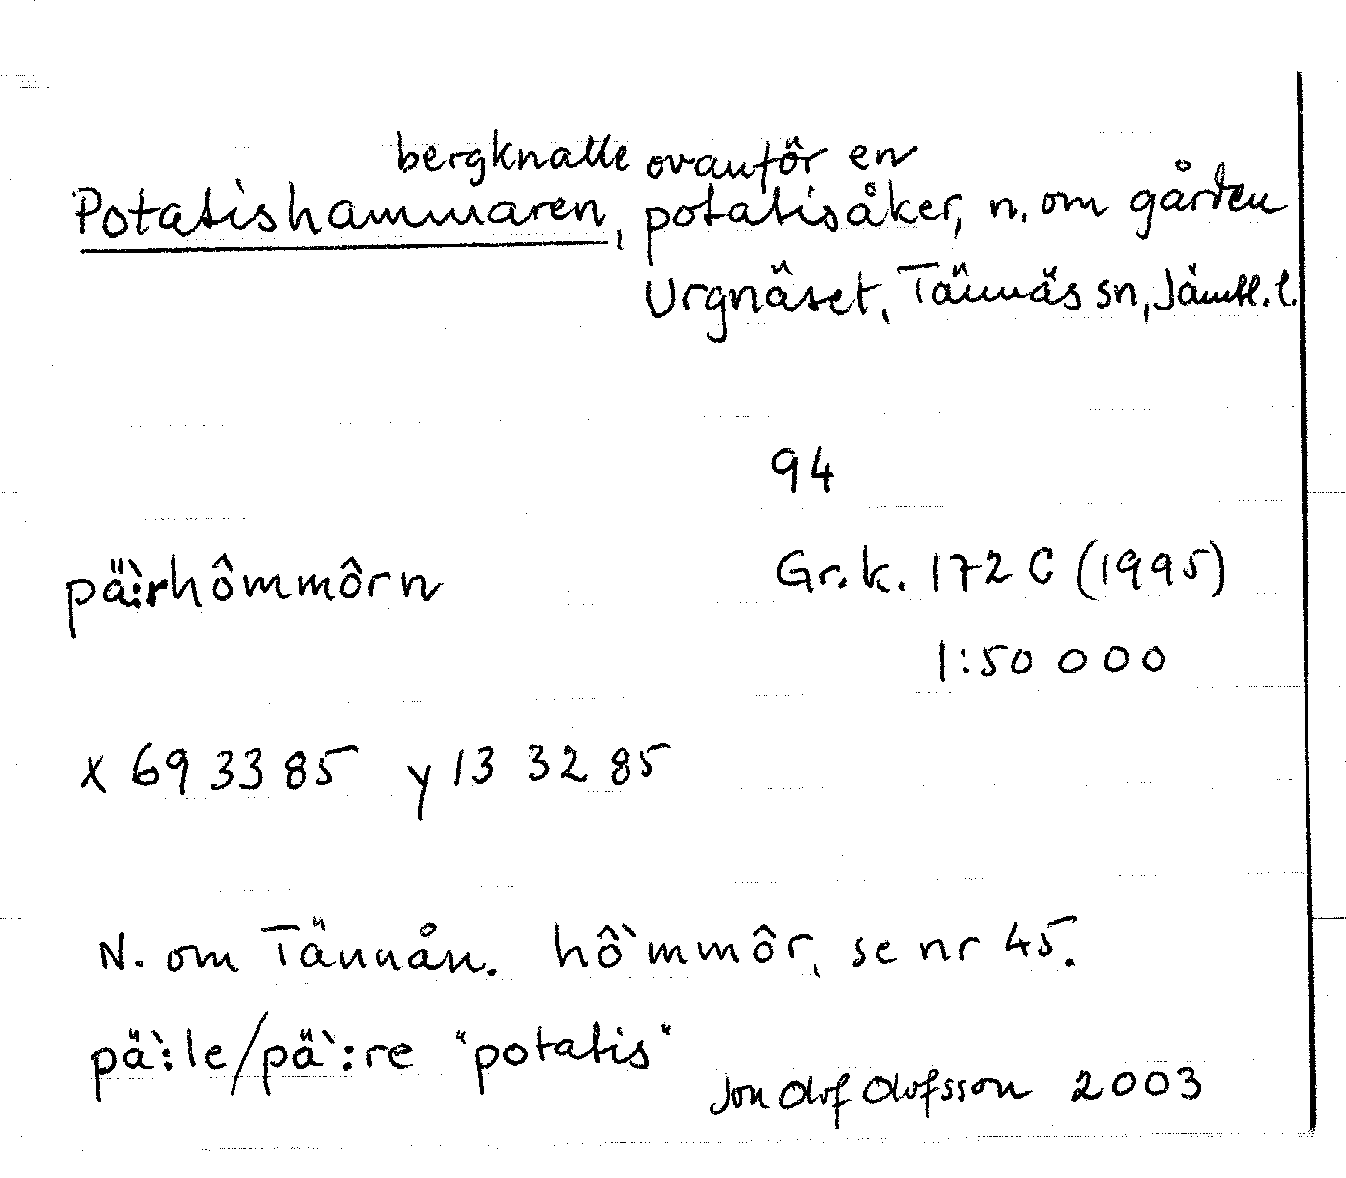 bergknalle ovanför en
Potatishammaren, potatisåker, n. om gården
Urgnäset, Tännäs sn, Jämtl. l.
94
pä̀:rhômmôrn Gr.k. 172 C (1995)
1:50 000
x 69 33 85 y 13 32 85
N. om Tännån. hô`mmôr, se nr 45.
pä`:le/pä`:re "potatis"
Jon Olof Olofsson 2003